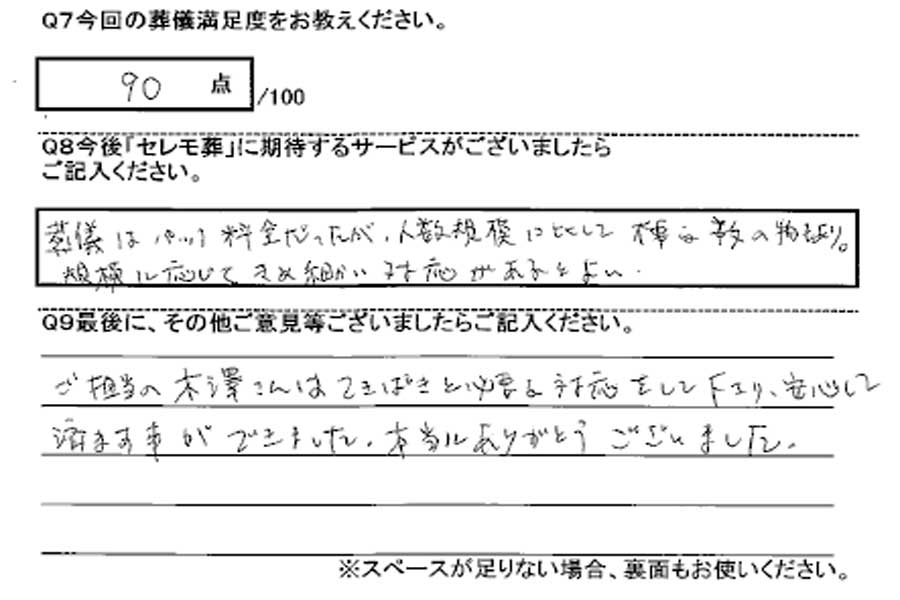 Q7今回の葬儀満足度をお教えください。
90 点 /100
Q8今後「セレモ葬」に期待するサービスがございましたら
ご記入ください。
葬儀はパック料金だったが、人数規模にとして 数の物もあり。
規模に応じてきめ細かい対応があるとよい.
Q9最後に、その他ご意見等ございましたらご記入ください。
ご担当の木澤さんはてきぱきと必要な対応をして下さり、安心して
済ます事ができました。本当にありがとうございました。
※スペースが足りない場合、裏面もお使いください。